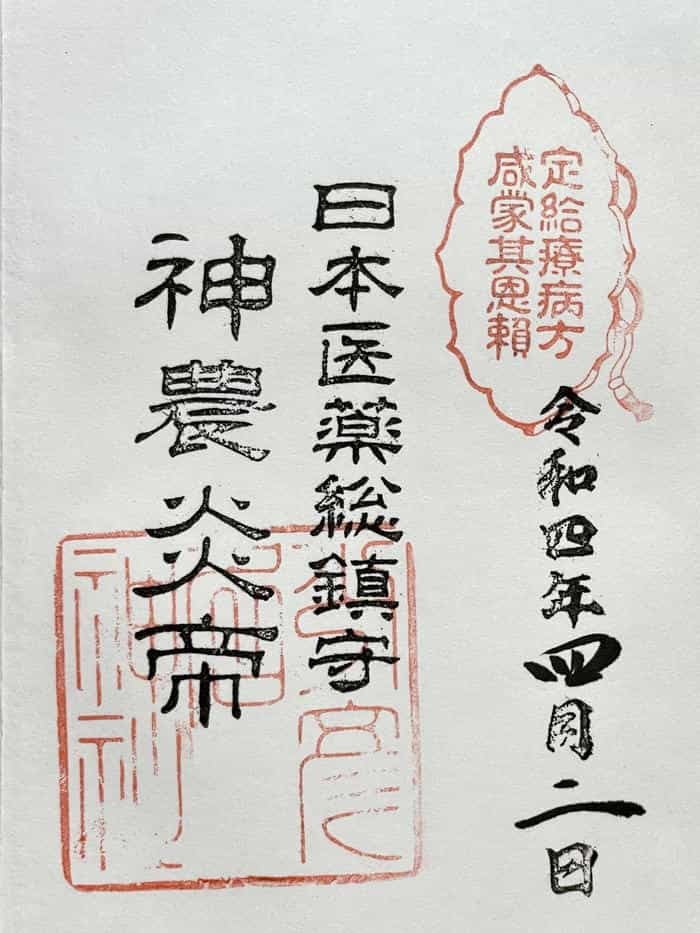 定給療病方
咸蒙其恩頼
令和四年四月二日
日本医薬総鎮守
神農炎帝